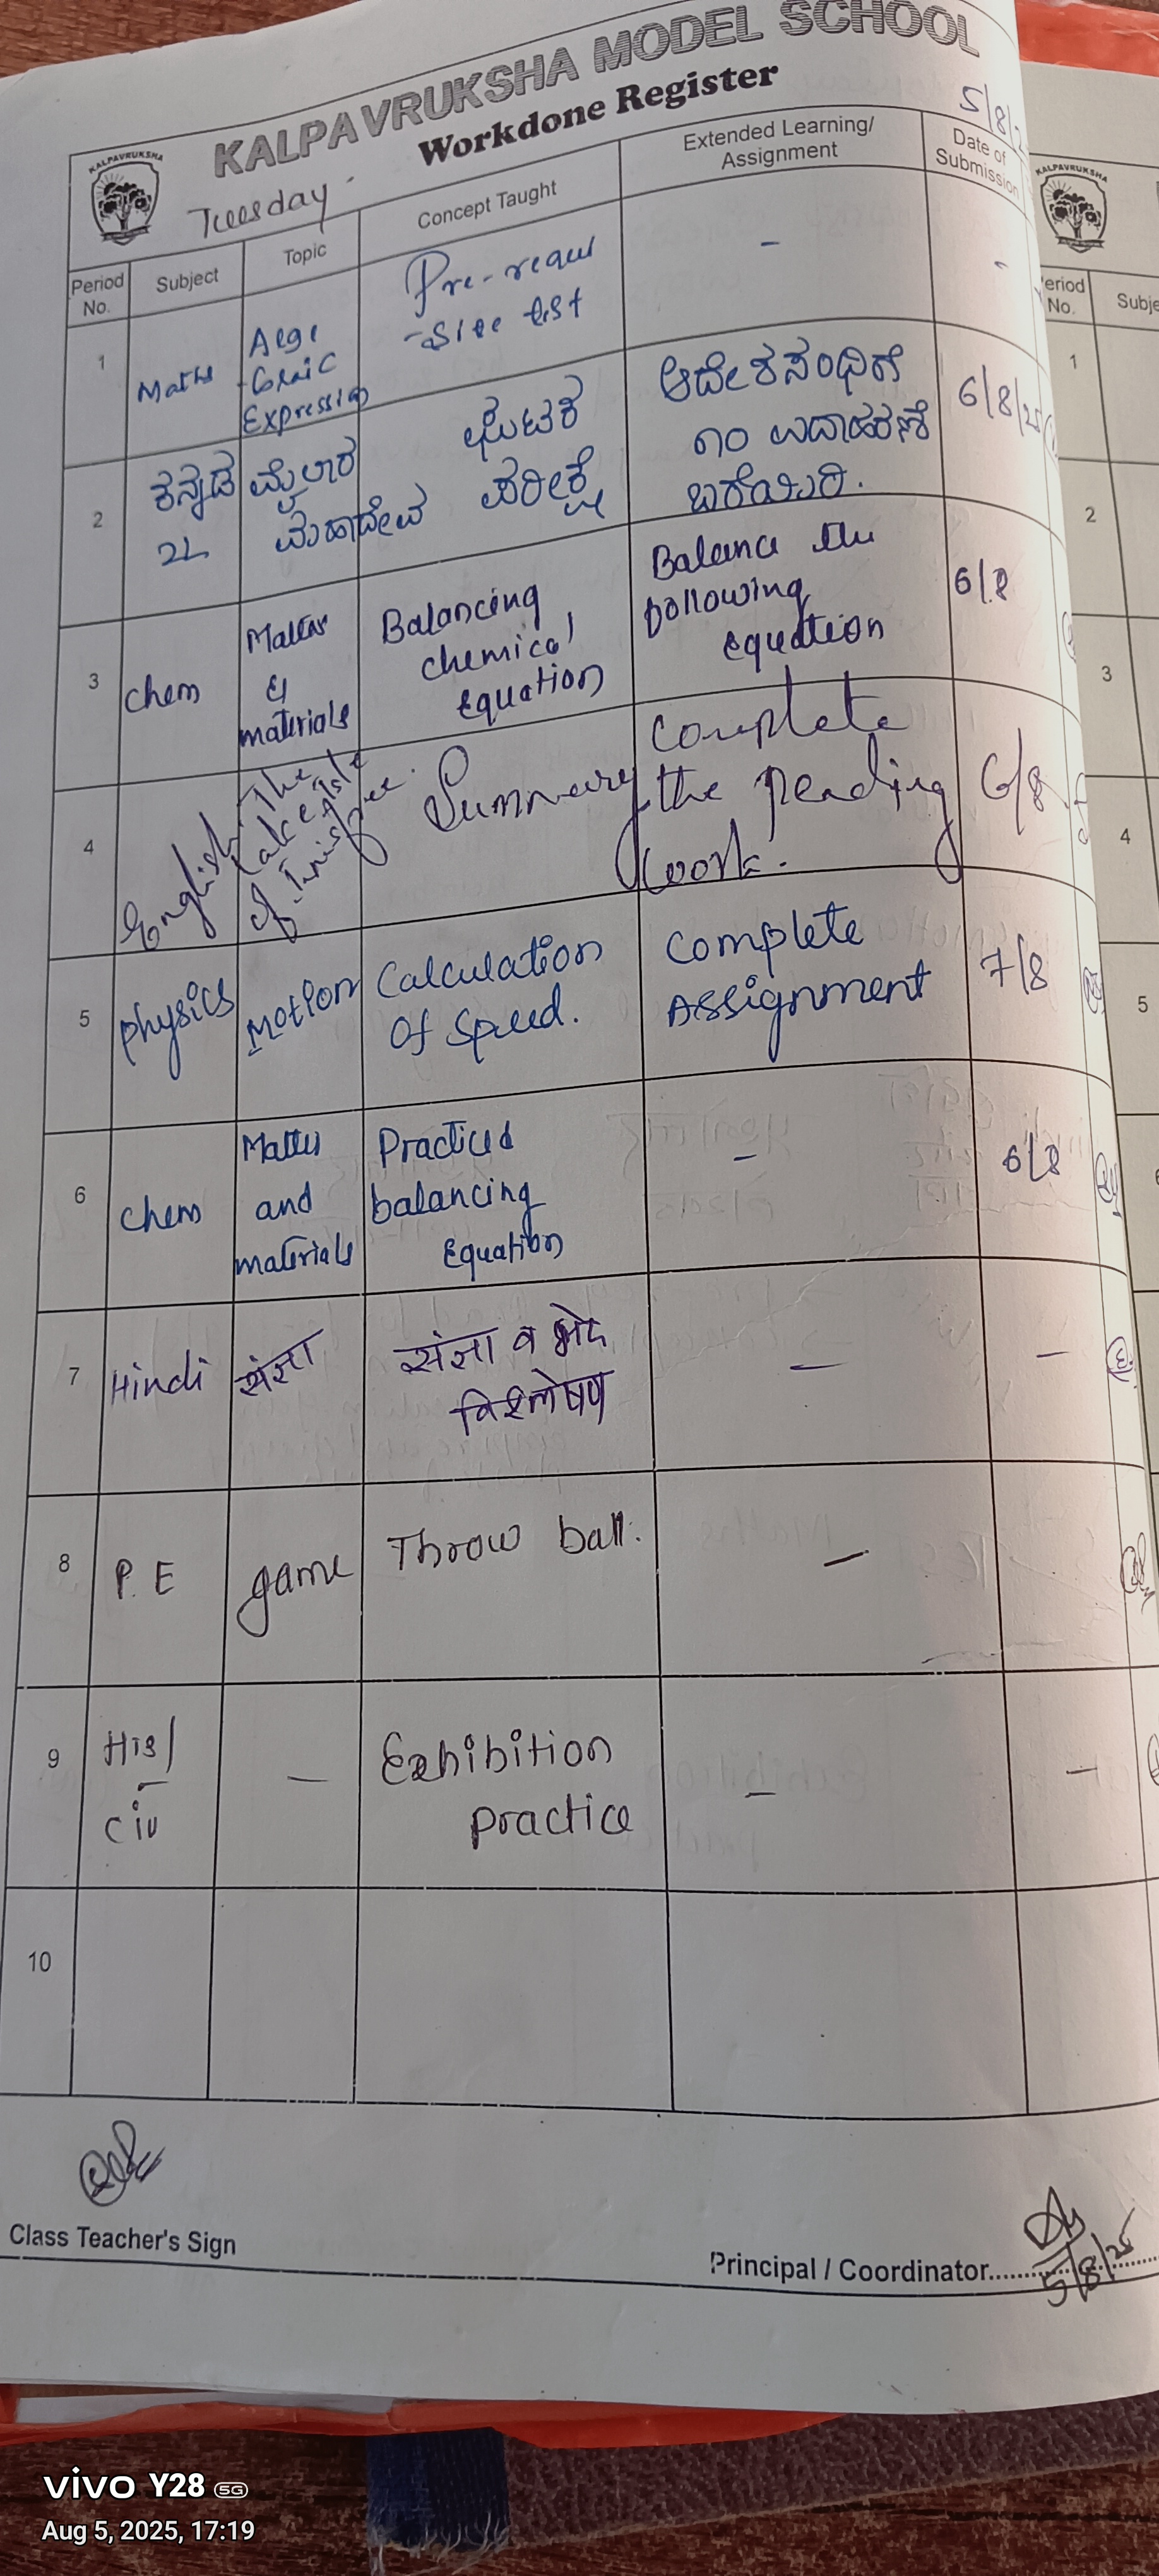 KALPAVRUKSHA MODEL SCHOOL
Workdone Register
5/8/2
KALPAVRUKSHA
Tuesday
Period No. Subject Topic Concept Taught Extended Learning/ Assignment Date of Submission
1 Maths Alge -braic Expression Pre-requi -site test - -
2 ಕನ್ನಡ 2L ಮೈಲಾರ ಮಹಾದೇವ ಘಟಕ ಪರೀಕ್ಷೆ ಆದೇಶಸಂಧಿಗೆ ೧೦ ಉದಾಹರಣೆ ಬರೆಯಿರಿ. 6/8/25
3 Chem Matter & materials Balancing chemical Equation Balance the following equation 6/8
4 English The Lake Isle of Innisfree. Summary Complete the reading work. 6/8
5 Physics Motion Calculation of Speed. Complete Assignment 7/8
6 Chem Matter and materials Practiced balancing Equation - 6/8
7 Hindi संज्ञा संज्ञा व भेद विश्लेषण - -
8 P.E game Throw ball. -
9 His/ civ - Exhibition practice - -
10
Class Teacher's Sign
Principal / Coordinator
5/8/25
KALPAVRUKSHA
eriod No. Subje
1
2
3
4
5
6
vivo Y28 5G
Aug 5, 2025, 17:19